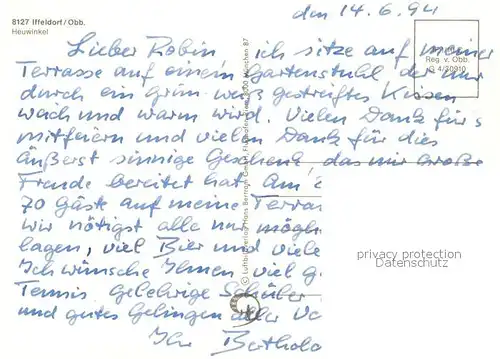 8127 Iffeldorf/Obb.
Heuwinkel
den 14.6.94
Reg. v. Obb.
G 4/30910
Lieber Robin, ich sitze auf meiner
Terrasse auf einem Gartenstuhl der nur
durch ein grün weiß gestreiftes Kissen
wach und warm wird. Vielen Dank für's
mitfeiern und vielen Dank für dies
äußerst sinnige Geschenk das mir große
Freude bereitet hat. Am
70 Gäste auf meine Terras
wir nötigst alle nur mögli
lagen, viel Bier und viele
Ich wünsche Ihnen viel g
Tennis gelehrige Schüler
und gutes Gelingen aller Vo
Ihr Berthold
© Luftbildverlag Hans Bertram GmbH, 8000 München 87
privacy protection
Datenschutz